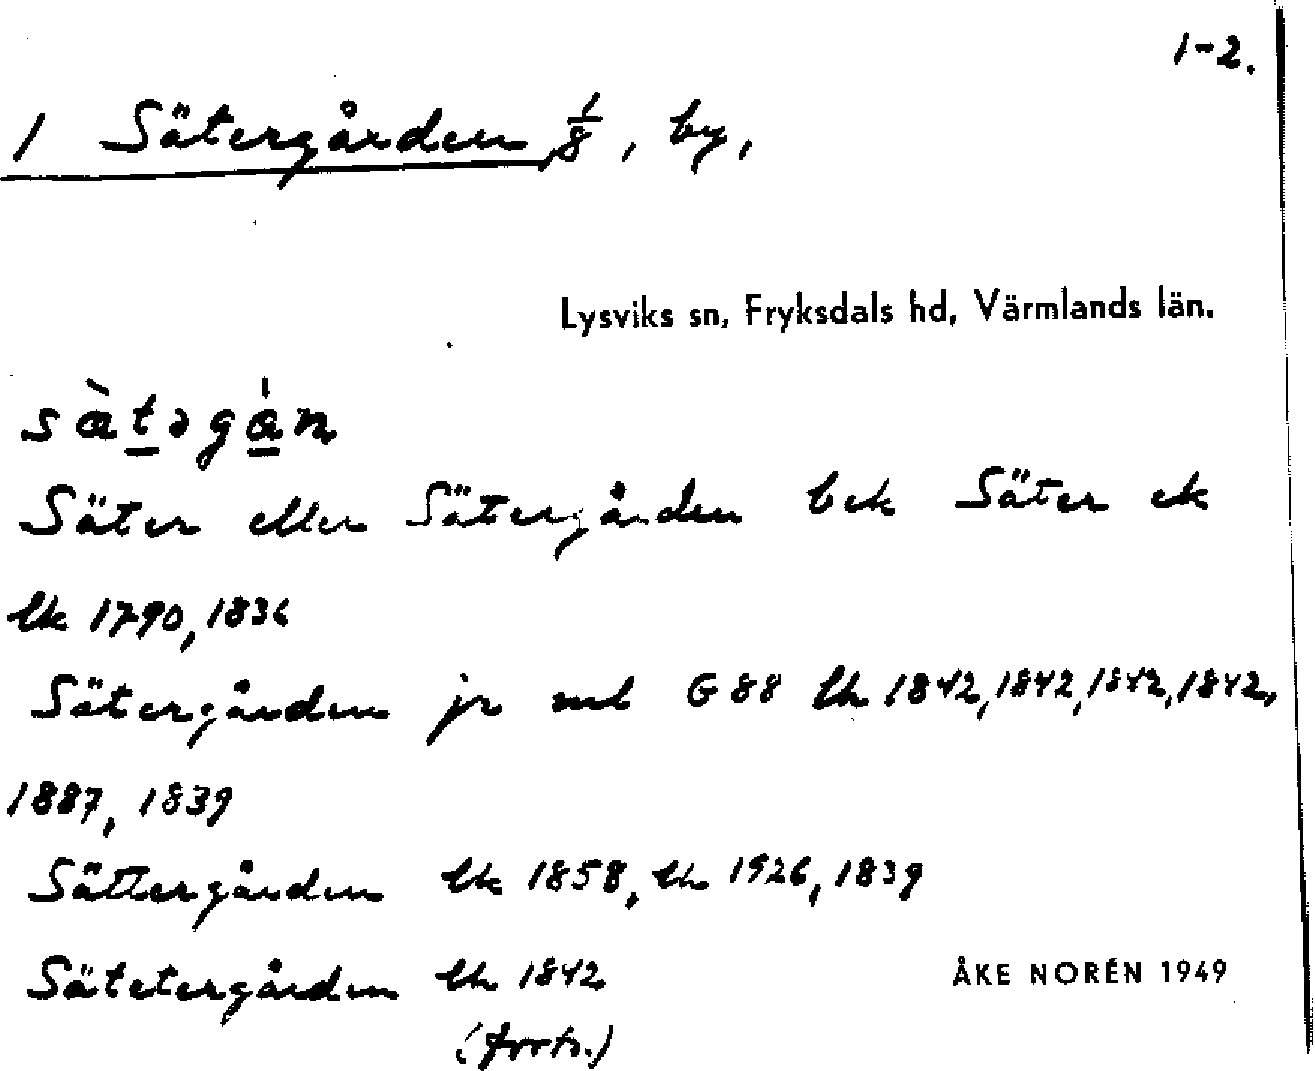 1-2.
1 Sätergården 1/8, by,
Lysviks sn, Fryksdals hd, Värmlands län.
sæ̀təgɑ́n
Säter eller Sätergården bek Säter ek
lk 1790, 1836
Sätergården jr ml G 88 lh 1842, 1842, 1842, 1842,
1887, 1839
Sättergården lk 1858, lh 1926, 1839
Sätetergården lh 1842
(forts.)
ÅKE NORÉN 1949